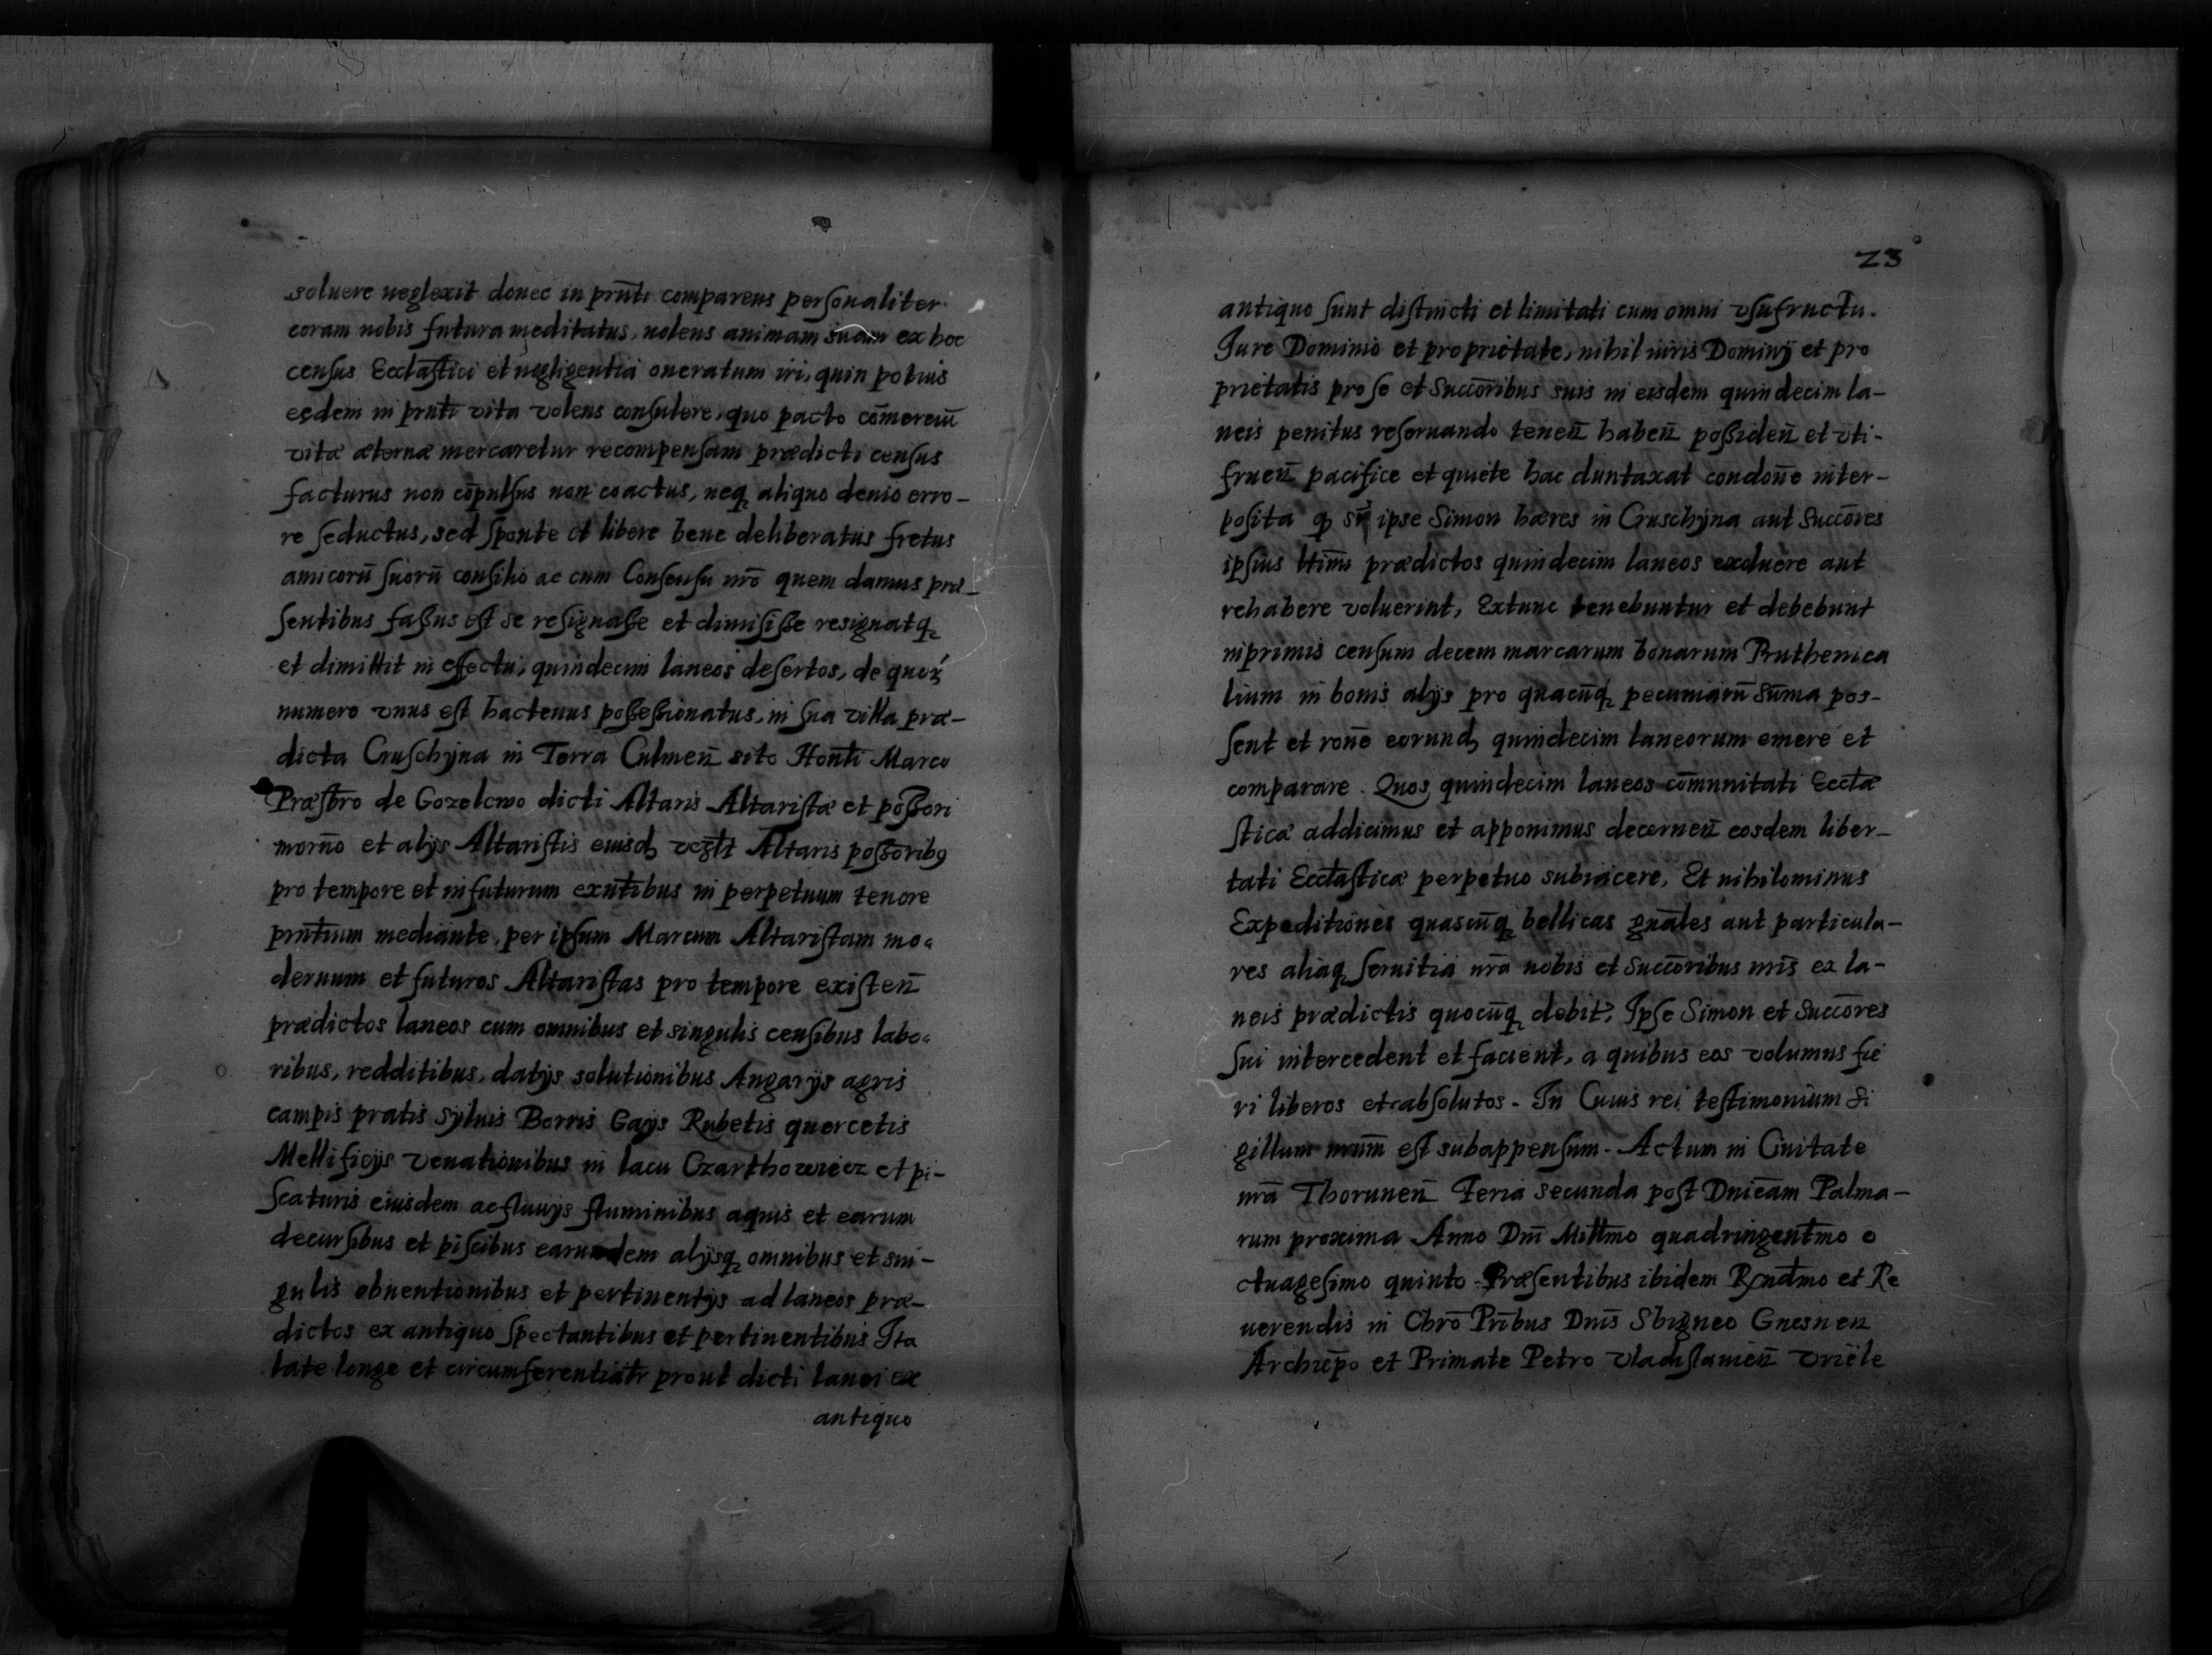 soluere neglexit donec in prñti compareus personaliter
coram nobis futura meditatus, nolens animam suam ex hoc
census Ecclastici et negligentia oneratum iri, quin potius
eędem in prñti vita volens consulere, quo pacto cōmerciū
vitæ æternæ mercaretur recompensam prædicti census
facturus non cōpulsus non coactus, neq aliquo denio erro-
re seductus, sed sponte et libere bene deliberatus fretus
amicorū suorū consilio ac cum Consensu nrō quem damus præ-
sentibus fassus est se resignasse et dimisisse resignatq
et dimittit in effectu, quindecim laneos desertos, de quorƺ
numero vnus est hactenus possessionatus, in sua villa præ-
dicta Cruschÿna in Terra Culmeñ sito Honñti Marco
Præstro de Gozelcwo dicti Altaris Altaristæ et possori
morño et alÿs Altaristis eiusdƺ Altaris possoribꝯ
pro tempore et in futurum exñtibus in perpetuum tenore
prñtium mediante, per ipsum Marcum Altaristam mo-
dernum et futuros Altaristas pro tempore existeñ
prædictos laneos cum omnibus et singulis censibus labo-
ribus, redditibus, datÿs solutionibus Angarÿs agris
campis pratis sÿluis Borris Gaÿs Rubetis quercetis
Mellificÿs venationibus in lacu Czarthowiecz et pi-
scaturis eiusdem ac fluuÿs fluminibus aquis et earum
decursibus et piscibus earundem alÿsq omnibus et sin-
gulis obuentionibus et pertinentÿs ad laneos præ-
dictos ex antiquo spectantibus et pertinentibus Ita
late longe et circumferentiatr prout dicti lanei ex
antiquo
23
antiquo sunt distincti et limitati cum omni vsufructu.
Jure Dominio et proprietate, nihil iuris Dominÿ et pro
prietatis pro se et Succōribus suis in eisdem quindecim la-
neis penitus reseruando teneñ habeñ possideñ et vti-
frueñ pacifice et quiete hac duntaxat condoñe inter-
posita ipse Simon hæres in Cruschÿna aut Succōres
ipsius prædictos quindecim laneos exoluere aut
rehabere voluerint, Extunc tenebuntur et debebunt
inprimis censum decem marcarum bonarum Pruthenica
lium in bonis alÿs pro quacūq pecuniarū sūma pos-
sent et roñe eorundƺ quindecim laneorum emere et
comparare. Quos quindecim laneos cōmunitati Eccłæ
sticæ addicimus et apponimus decerneñ eosdem liber-
tati Eccłasticæ perpetuo subiacere, Et nihilominus
Expeditiones quascūq bellicas gnāles aut particula-
res aliaq seruitia nrā nobis et succōribus nrīs ex la-
neis prædictis quocūq debit, Ipse Simon et Succōres
sui intercedent et facient, a quibus eos volumus fie
ri liberos et absolutos. In Cuius rei testimonium si
gillum nrūm est subappensum. Actum in Ciuitate
nrā Thoruneñ Feria secunda post Dnicām Palma-
rum proxima Anno Dnī Millmo quadringentmo o
ctuagesimo quinto. Præsentibus ibidem Rndmo et Re
uerendis in Chrō Prībus Dnīs Sbigneo Gnesneñ
Archiepō et Primate Petro Vladislauieñ Vriële